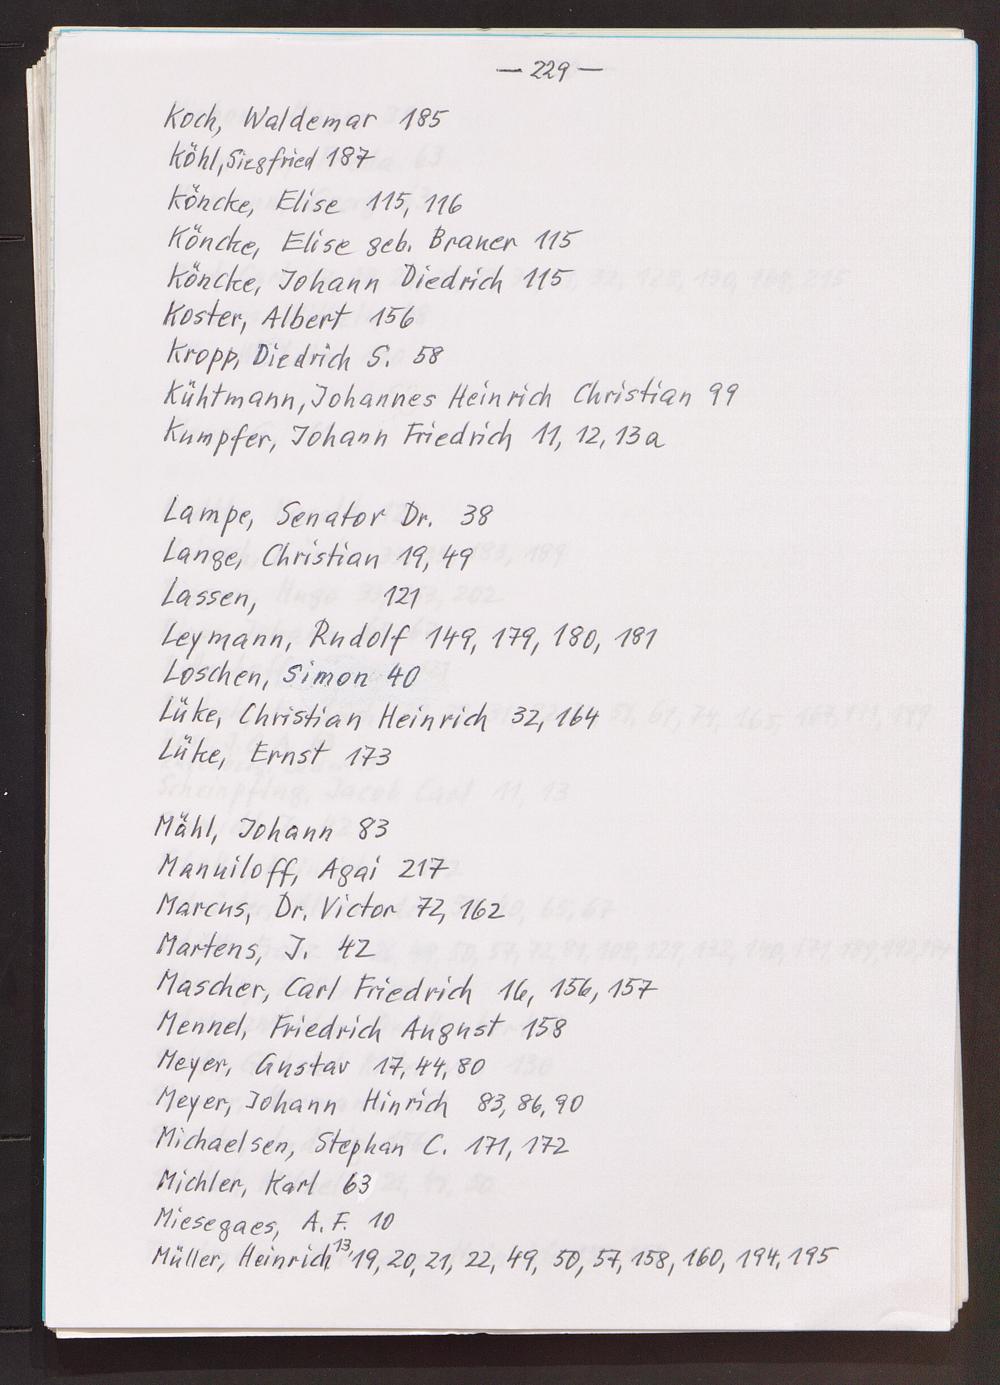 — 229 —
Koch, Waldemar 185
Köhl, Siegfried 187
Köncke, Elise 115, 116
Köncke, Elise geb. Brauer 115
Köncke, Johann Diedrich 115
Koster, Albert 156
Kropp, Diedrich S. 58
Kühtmann, Johannes Heinrich Christian 99
Kumpfer, Johann Friedrich 11, 12, 13a
Lampe, Senator Dr. 38
Lange, Christian 19, 49
Lassen, 121
Leymann, Rudolf 149, 179, 180, 181
Loschen, Simon 40
Lüke, Christian Heinrich 32, 164
Lüke, Ernst 173
Mähl, Johann 83
Manuiloff, Agai 217
Marcus, Dr. Victor 72, 162
Martens, J. 42
Mascher, Carl Friedrich 16, 156, 157
Mennel, Friedrich August 158
Meyer, Gustav 17, 44, 80
Meyer, Johann Hinrich 83, 86, 90
Michaelsen, Stephan C. 171, 172
Michler, Karl 63
Miesegaes, A. F. 10
Müller, Heinrich 13, 19, 20, 21, 22, 49, 50, 57, 158, 160, 194, 195